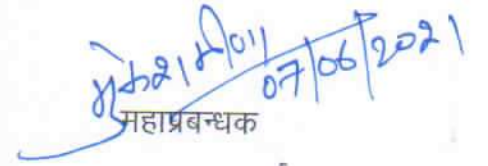 मुकेश मीणा
07/06/2021
महाप्रबन्धक